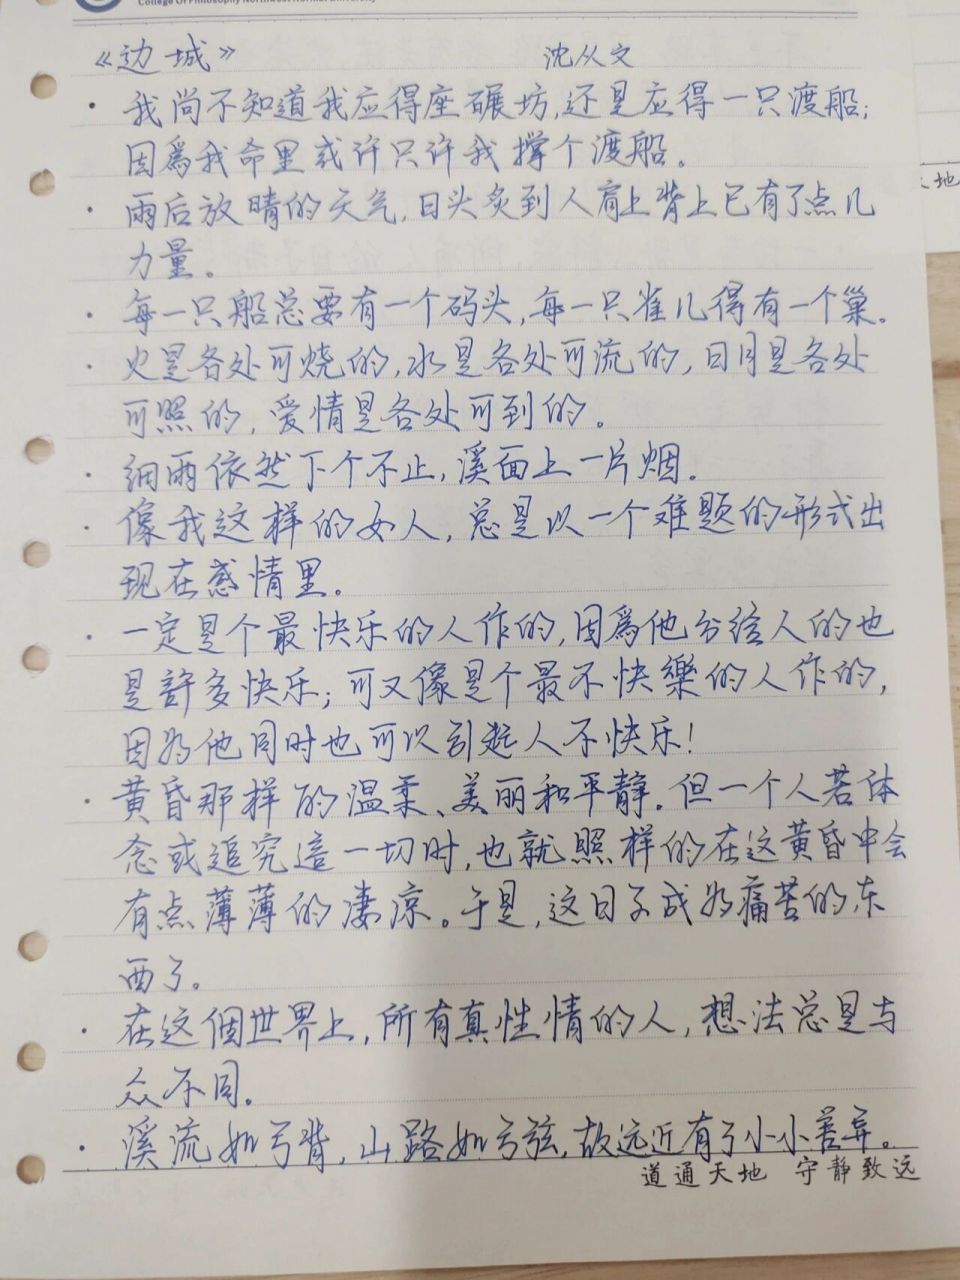 College Of Philosophy Northwest Normal University
《边城》 沈从文
· 我尚不知道我应得座碾坊,还是应得一只渡船;
因爲我命里或许只许我撑个渡船。
· 雨后放晴的天气,日头炙到人肩上背上已有了点儿
力量。
· 每一只船总要有一个码头,每一只雀儿得有一个巢。
· 火是各处可烧的,水是各处可流的,日月是各处
可照的,爱情是各处可到的。
· 细雨依然下个不止,溪面上一片烟。
· 像我这样的女人,总是以一个难题的形式出
现在感情里。
· 一定是个最快乐的人作的,因爲他分给人的也
是許多快乐;可又像是个最不快樂的人作的,
因为他同时也可以引起人不快乐!
· 黄昏那样的温柔、美丽和平静。但一个人若体
念或追究這一切时,也就照样的在这黄昏中会
有点薄薄的凄凉。于是,这日子成为痛苦的东
西了。
· 在这個世界上,所有真性情的人,想法总是与
众不同。
· 溪流如弓背,山路如弓弦,故远近有了小小差异。
道通天地 守静致远